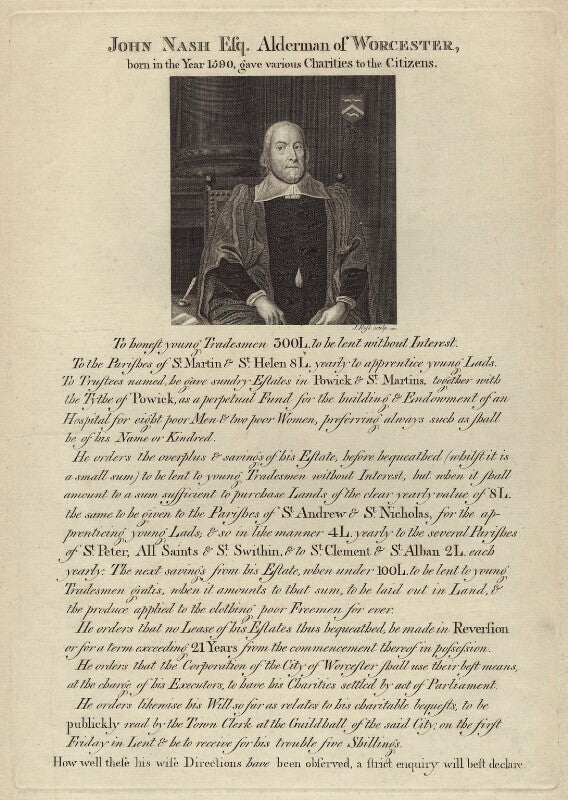 JOHN NASH Eſq. Alderman of WORCESTER,
born in the Year 1590, gave various Charities to the Citizens.
J. Roſs sculp
To honeſt young Tradesmen 300L, to be lent without Interest.
To the Pariſhes of St. Martin & St. Helen 8L, yearly to apprentice young Lads.
To Trustees named, he gave sundry Estates in Powick & St. Martins, together with
the Tythe of Powick, as a perpetual Fund for the building & Endowment of an
Hospital for eight poor Men & two poor Women, preferring always such as ſhall
be of his Name or Kindred.
He orders the overplus & savings of his Eſtate, before bequeathed (whilſt it is
a small sum) to be lent to young Tradesmen without Interest, but when it ſhall
amount to a sum sufficient to purchase Lands of the clear yearly value of 8L.
the same to be given to the Pariſhes of St. Andrew & St. Nicholas, for the ap-
prenticing young Lads; & so in like manner 4L. yearly to the several Pariſhes
of St. Peter, All Saints & St. Swithin, & to St. Clement & St. Alban 2L. each
yearly: The next savings from his Eſtate, when under 100L, to be lent to young
Tradesmen gratis, when it amounts to that sum, to be laid out in Land, &
the produce applied to the clothing poor Freemen for ever.
He orders that no Lease of his Eſtates thus bequeathed, be made in Reverſion
or for a term exceeding 21 Years from the commencement thereof in poſseſsion.
He orders that the Corporation of the City of Worceſter ſhall use their beſt means,
at the charge of his Executors, to have his Charities settled by act of Parliament.
He orders likewise his Will so far as relates to his charitable bequeſts, to be
publickly read by the Town Clerk at the Guildhall, of the said City, on the firſt
Friday in Lent & he to receive for his trouble five Shillings.
How well theſe his wiſe Directions have been obſerved, a ſtrict enquiry will beſt declare.